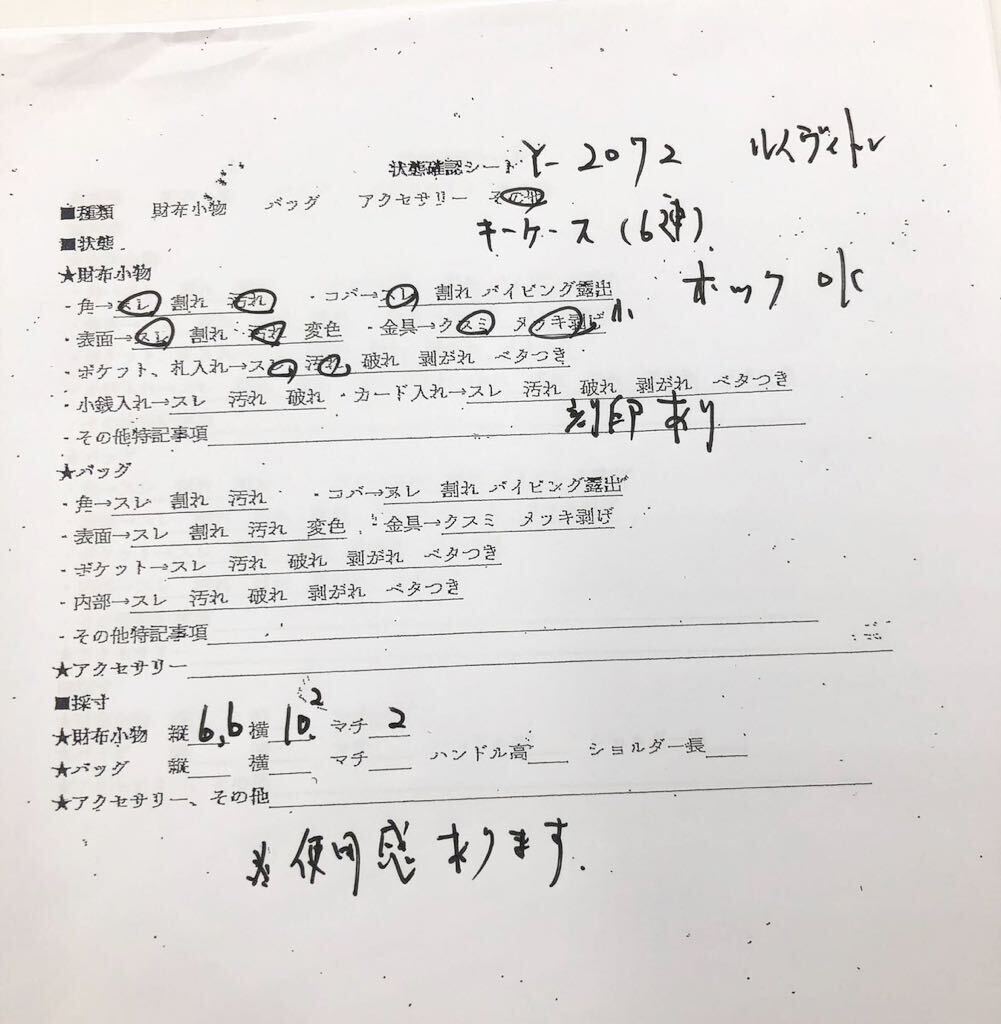 状態確認シート Y-2072 ルイヴィトン
■種類 財布小物 バッグ アクセサリー その他
キーケース(6連)
■状態
★財布小物
ホック OK
・角→スレ 割れ 汚れ ・コバ→スレ 割れ パイピング露出
・表面→スレ 割れ 汚れ 変色 ・金具→クスミ メッキ剥げ 小
・ポケット、札入れ→スレ 汚れ 破れ 剥がれ ベタつき
・小銭入れ→スレ 汚れ 破れ ・カード入れ→スレ 汚れ 破れ 剥がれ ベタつき
・その他特記事項 刻印あり
★バッグ
・角→スレ 割れ 汚れ ・コバ→スレ 割れ パイピング露出
・表面→スレ 割れ 汚れ 変色 ・金具→クスミ メッキ剥げ
・ポケット→スレ 汚れ 破れ 剥がれ ベタつき
・内部→スレ 汚れ 破れ 剥がれ ベタつき
・その他特記事項
★アクセサリー
■採寸
★財布小物 縦6,6 横10.2 マチ2
★バッグ 縦 横 マチ ハンドル高 ショルダー長
★アクセサリー、その他
※使用感あります.